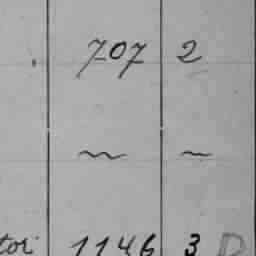 707 2
~ ~
tor 1146 3 D